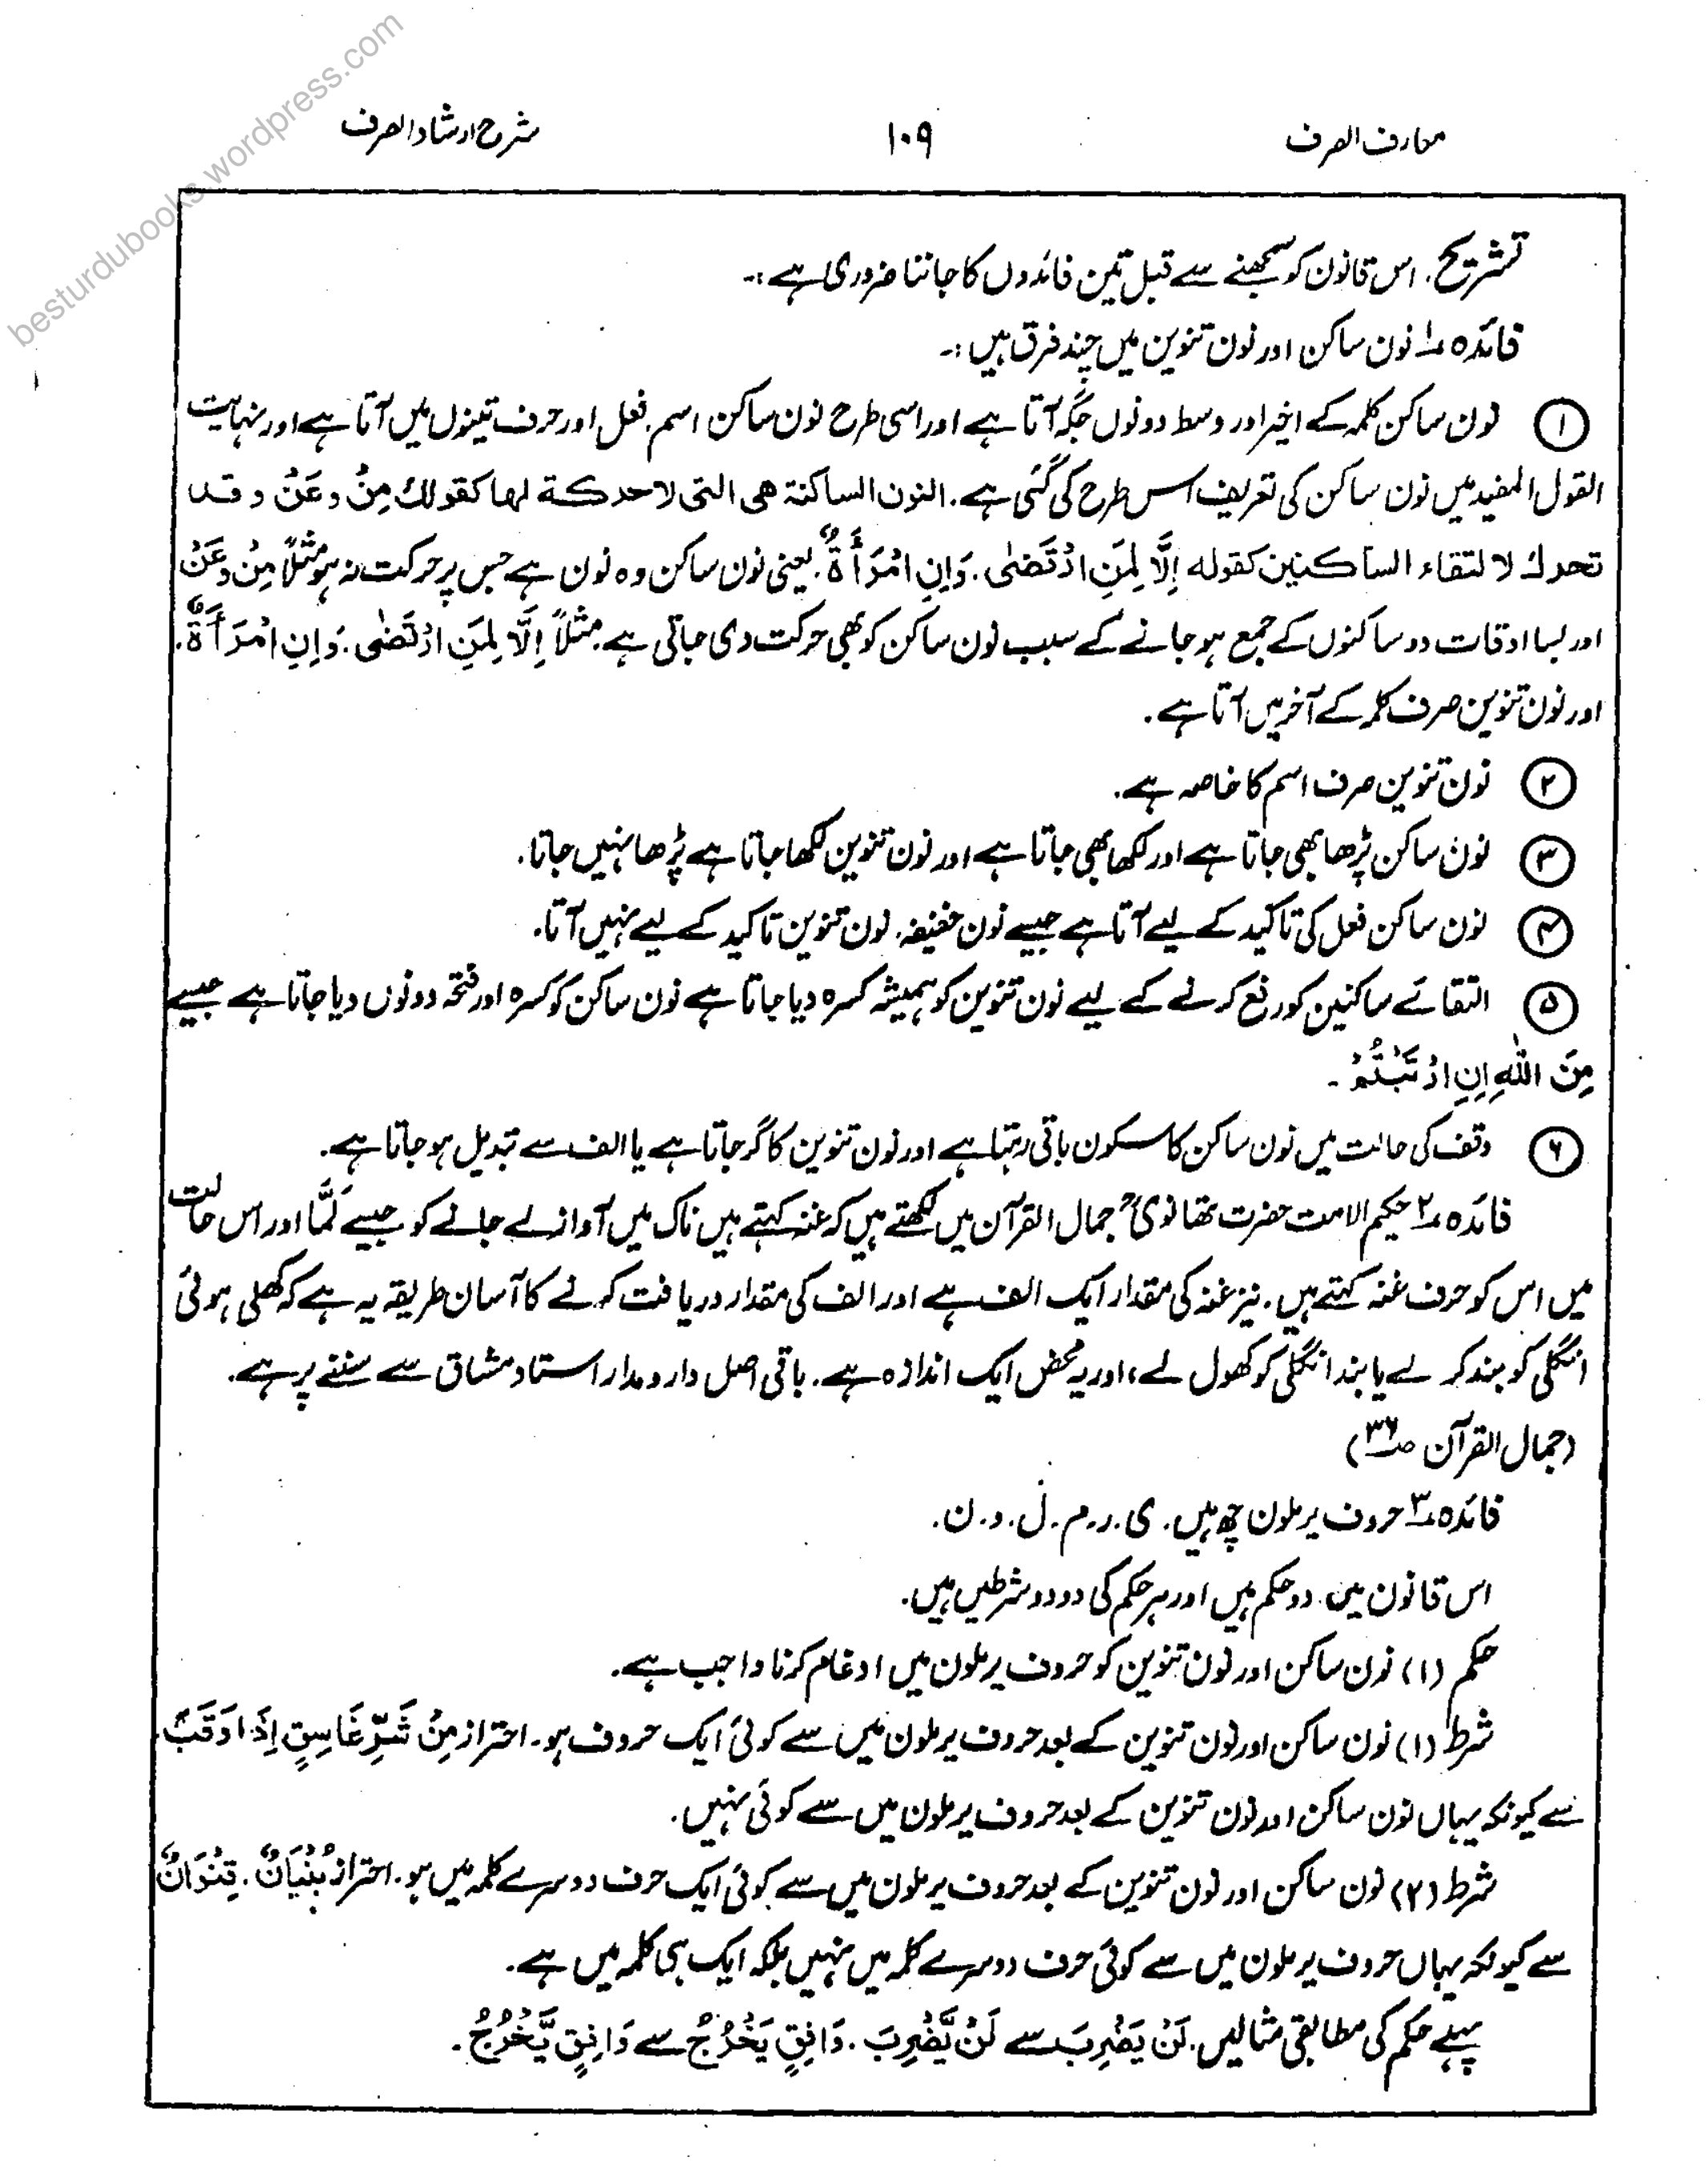 besturdubooks.wordpress.com
معارف الصرف
۱۰۹
شرح ارشاد الصرف
تشریح. اس قانون کو سمجھنے سے قبل تین فائدوں کا جاننا ضروری ہے :-
فائدہ ۱ نون ساکن اور نون تنوین میں چند فرق ہیں :-
۱ نون ساکن کلمہ کے اخیر اور وسط دونوں جگہ آتا ہے اور اسی طرح نون ساکن اسم، فعل اور حرف تینوں میں آتا ہے اور نہایت
القول المفید میں نون ساکن کی تعریف اس طرح کی گئی ہے. النون الساکنة هی التی لا حرکة لها کقولك مِنْ وعَنْ وقد
تحرك لا لتقاء الساکنین کقوله اِلَّا لِمَنِ ارْتَضٰی. وَاِنِ امْرَأَةٌ. یعنی نون ساکن وہ نون ہے جس پر حرکت نہ ہو مثلاً مِنْ وعَنْ
اور بسا اوقات دو ساکنوں کے جمع ہو جانے کے سبب نون ساکن کو بھی حرکت دی جاتی ہے. مثلاً اِلَّا لِمَنِ ارْتَضٰی. وَاِنِ امْرَأَةٌ.
اور نون تنوین صرف کلمہ کے آخر میں آتا ہے.
۲ نون تنوین صرف اسم کا خاصہ ہے.
۳ نون ساکن پڑھا بھی جاتا ہے اور لکھا بھی جاتا ہے اور نون تنوین لکھا جاتا ہے پڑھا نہیں جاتا.
۴ نون ساکن فعل کی تاکید کے لیے آتا ہے جیسے نون خفیفہ. نون تنوین تاکید کے لیے نہیں آتا.
۵ التقائے ساکنین کو رفع کرنے کے لیے نون تنوین کو ہمیشہ کسرہ دیا جاتا ہے نون ساکن کو کسرہ اور فتحہ دونوں دیا جاتا ہے جیسے
مِنَ اللّٰهِ اِنِ ارْتَبْتُمْ -
۶ وقف کی حالت میں نون ساکن کا سکون باقی رہتا ہے اور نون تنوین کا گر جاتا ہے یا الف سے تبدیل ہو جاتا ہے.
فائدہ ۲ حکیم الامت حضرت تھانویؒ جمال القرآن میں لکھتے ہیں کہ غنہ کہتے ہیں ناک میں آواز لے جانے کو جیسے لَمَّا اور اس حالت
میں اس کو حرف غنہ کہتے ہیں. نیز غنہ کی مقدار ایک الف ہے اور الف کی مقدار دریافت کرنے کا آسان طریقہ یہ ہے کہ کھلی ہوئی
انگلی کو بند کر لے یا بند انگلی کو کھول لے، اور یہ محض ایک اندازہ ہے. باقی اصل دارومدار استاد مشاق سے سننے پر ہے.
(جمال القرآن صـ ۳۶)
فائدہ ۳ حروف یرملون چھ ہیں. ی. ر. م. ل. و. ن.
اس قانون میں دو حکم ہیں اور ہر حکم کی دو دو شرطیں ہیں.
حکم (۱) نون ساکن اور نون تنوین کو حروف یرملون میں ادغام کرنا واجب ہے.
شرط (۱) نون ساکن اور نون تنوین کے بعد حروف یرملون میں سے کوئی ایک حروف ہو. احتراز مِنْ شَرِّ غَاسِقٍ اِذَا وَقَبَ
سے کیونکہ یہاں نون ساکن اور نون تنوین کے بعد حروف یرملون میں سے کوئی نہیں.
شرط (۲) نون ساکن اور نون تنوین کے بعد حروف یرملون میں سے کوئی ایک حرف دوسرے کلمہ میں ہو. احتراز بُنْیَانٌ. قِنْوَانٌ
سے کیونکہ یہاں حروف یرملون میں سے کوئی حرف دوسرے کلمہ میں نہیں بلکہ ایک ہی کلمہ میں ہے.
پہلے حکم کی مطابقی مثالیں. لَنْ یَضْرِبَ سے لَنْ یَّضْرِبَ. وَافِقٍ یَخْرُجُ سے وَافِقٍ یَّخْرُجُ.